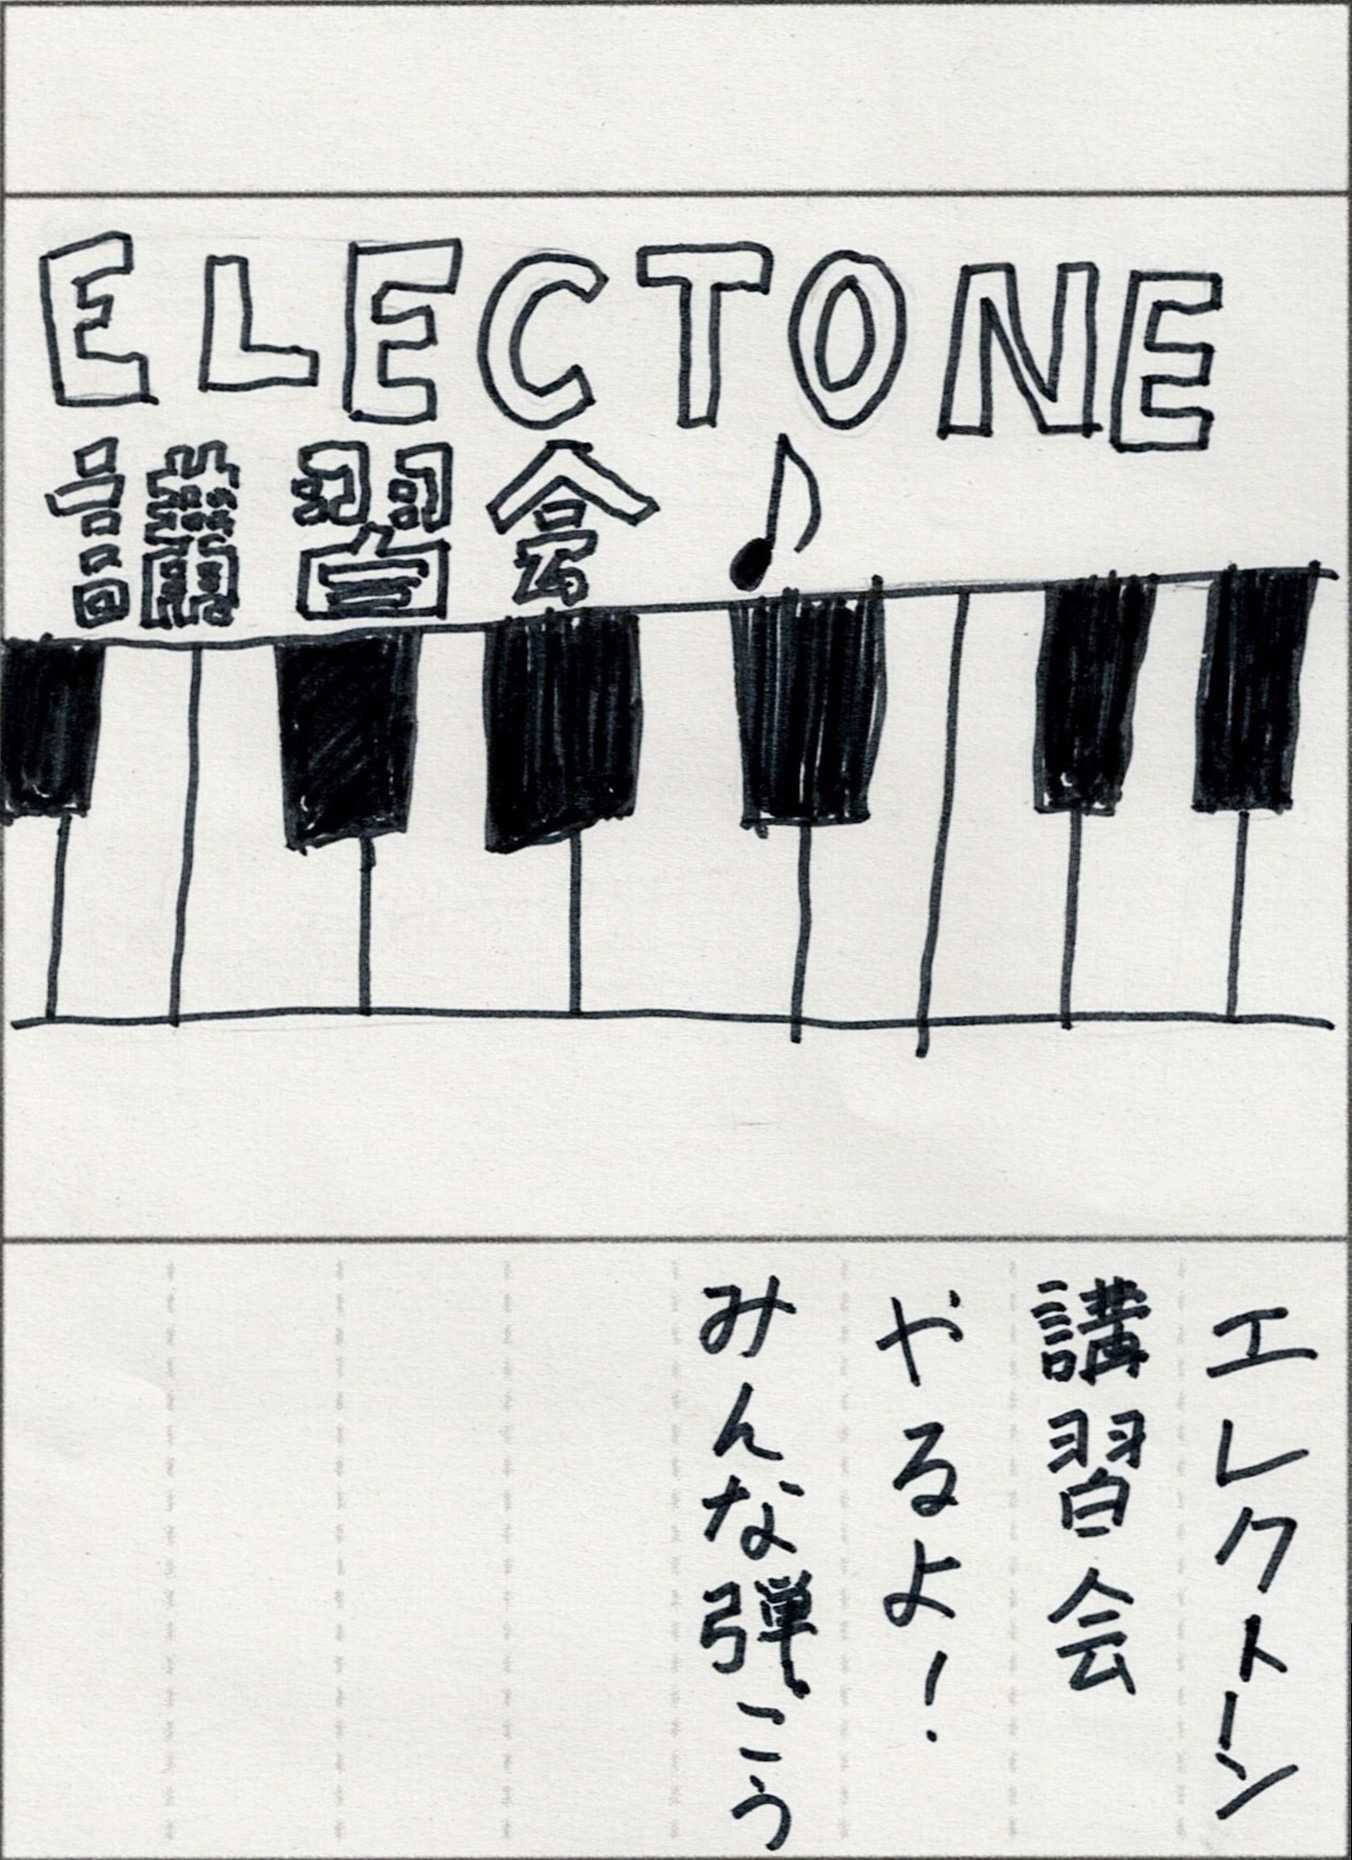 ELECTONE
講習会♪
エレクトーン
講習会
やるよ！
みんな弾こう